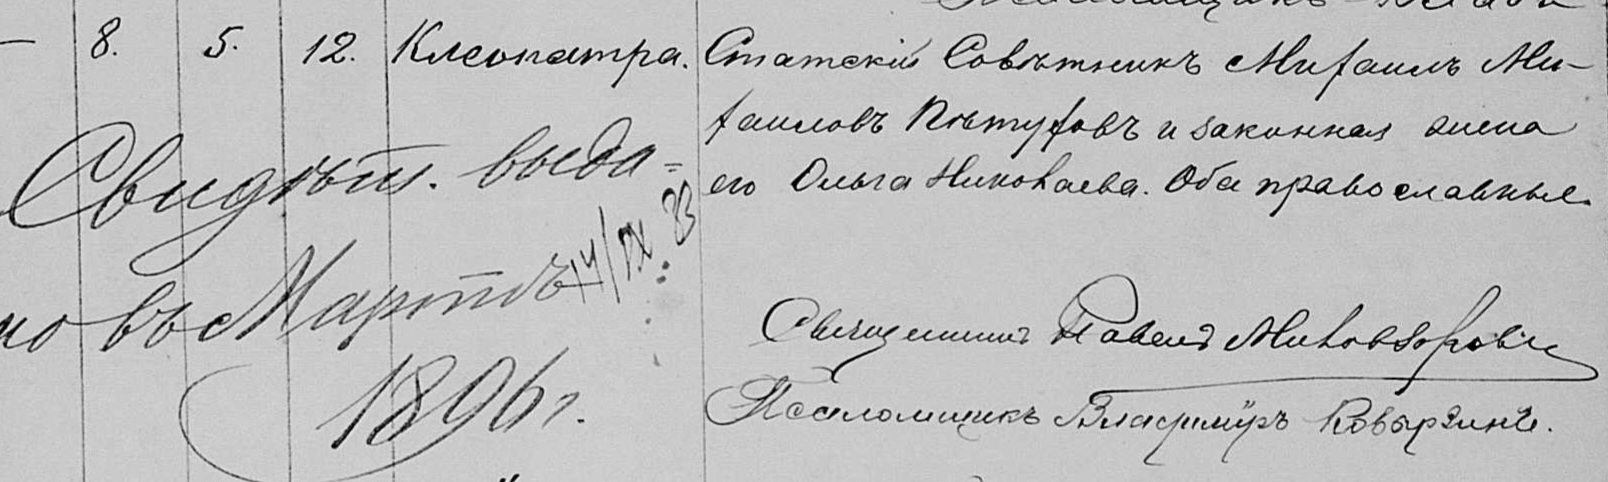 — 8. 5. 12. Клеопатра. Статскій Совѣтникъ Михаилъ Ми-
хаиловъ Пѣтуховъ и законная жена
его Ольга Николаева. Оба православные.
Свидѣт. выда=
но въ Мартѣ
14/IX 83
1896 г.
Священникъ Павелъ
Псаломщикъ Владиміръ